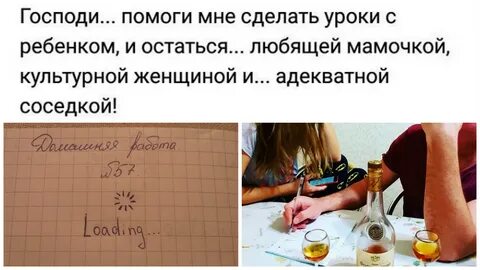 Господи... помоги мне сделать уроки с
ребенком, и остаться... любящей мамочкой,
культурной женщиной и... адекватной
соседкой!
Домашняя работа
№57
Loading...